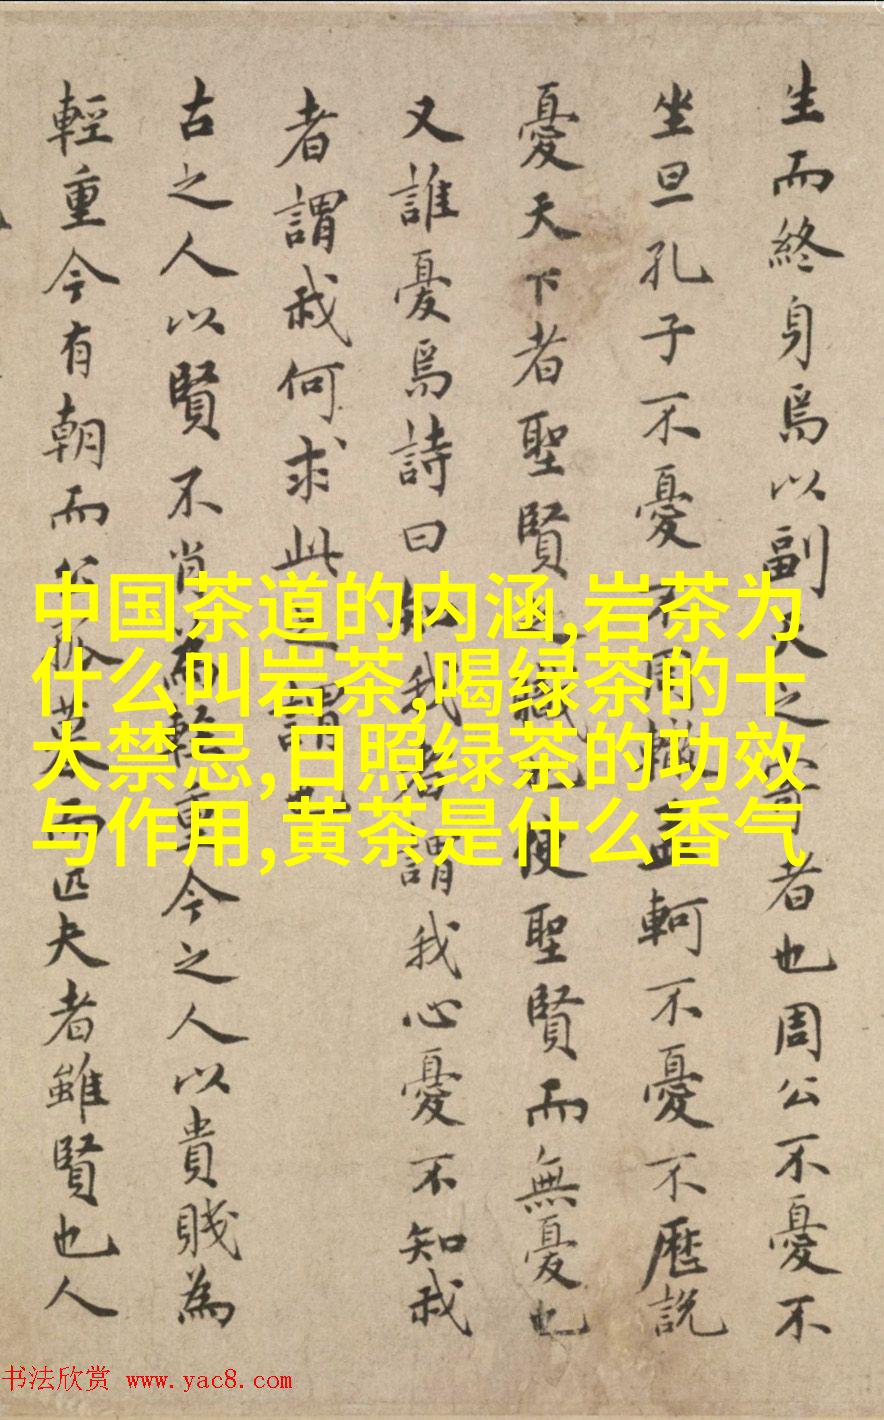 生而終身焉以副天之
者也周公不憂不
坐旦孔子不憂不用
軻不憂不歷説
憂天下者聖賢之職也使聖賢而無憂也
又誰憂焉詩曰知我者謂我心憂不知我
者謂我何求此之謂也
古之人以賢不肖為輕重今之人以貴賤為
輕重今有朝而公孤暮而匹夫者雖賢也人
中国茶道的内涵,岩茶为
什么叫岩茶,喝绿茶的十
大禁忌,日照绿茶的功效
与作用,黄茶是什么香气
书法欣赏 www.yac8.com